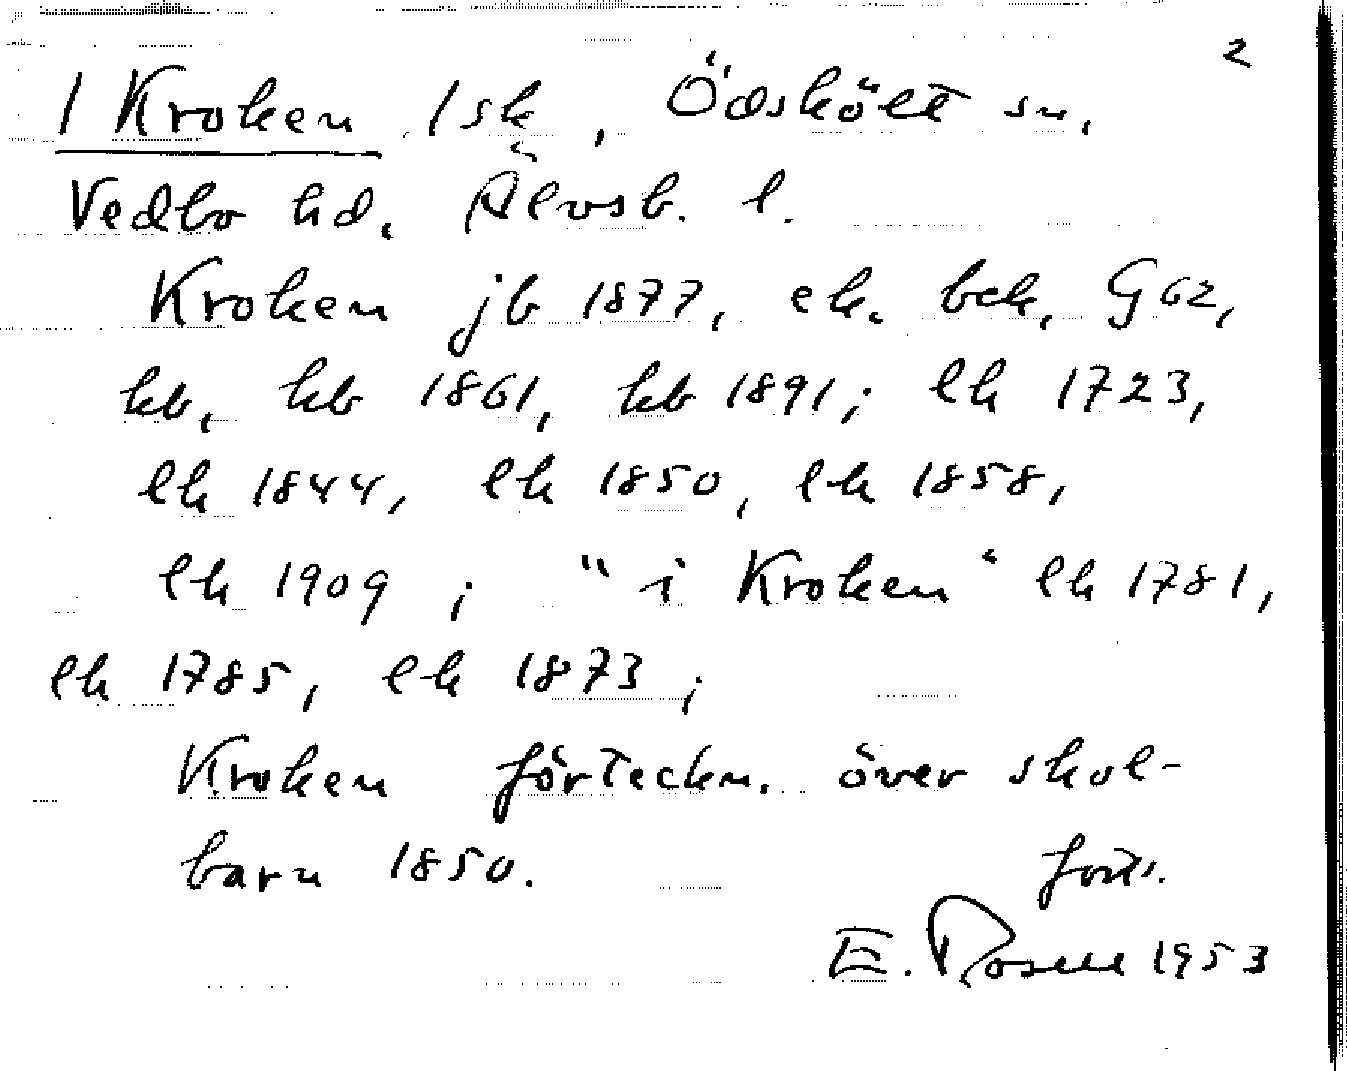 2
/ Kroken /sk, Ödskölt sn,
Vedbo hd, Älvsb. l.
Kroken jb 1877, ek. bek, G62,
kb, kb 1861, kb 1891; lh 1723,
lh 1844, lh 1850, lh 1858,
lh 1909; "i Kroken" lh 1781,
lh 1785, lh 1873;
Kroken förteckn. över skol-
barn 1850. forts.
E. Rosell 1953